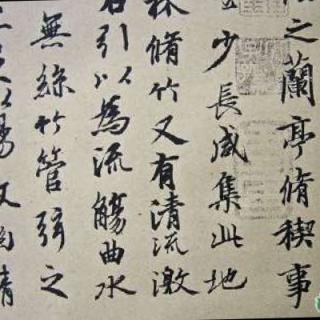 之蘭亭脩稧事
至少長咸集此地
林脩竹又有清流激
右引以為流觴曲水
無絲竹管弦之